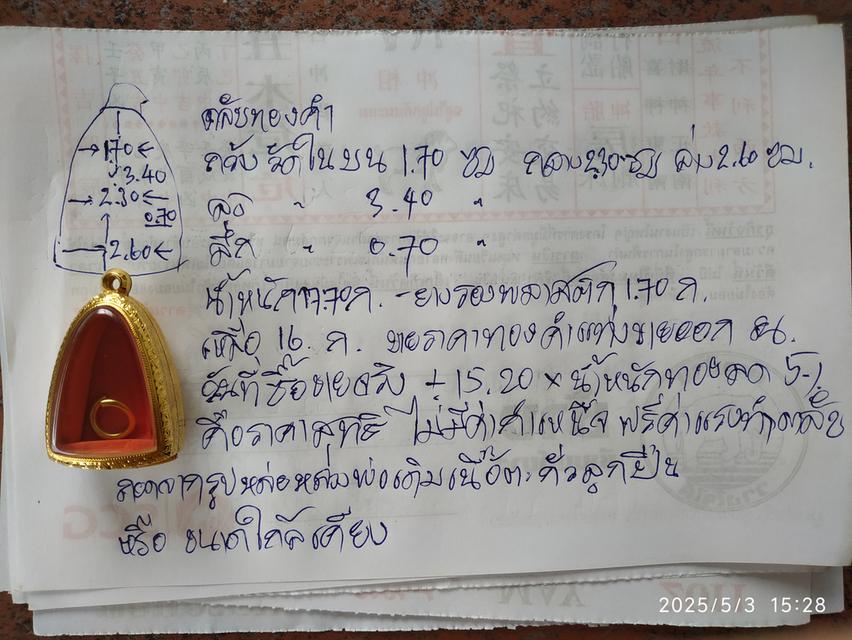 ตลับทองคำ
กว้าง วัดในบน 1.70 ซม กลาง 2.30 ซม ล่าง 2.60 ซม.
สูง " 3.40 "
ลึก " 0.70 "
น้ำหนัก 17.70 ก. - ยางรองพลาสติก 1.70 ก.
เหลือ 16. ก. ขายราคาทองคำแท่งขายออก ณ.
วันที่ซื้อขายจริง + 15.20 × น้ำหนักทอง ลด 5-1.
คือราคาสุทธิ ไม่มีค่ากำเหน็จ ฟรีค่าแรงทำตลับ
ถอดจากรูปหล่อหลวงพ่อเดิมเนื้อตะกั่วลูกปืน
หรือ ขนาดใกล้เคียง
→170←
3.40
→2.30←
0.70
2.60←
2025/5/3 15:28